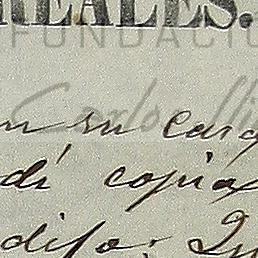 REALES.
FUNDACIÓ
Carlos
en su carg
di copia
dijo: Qu